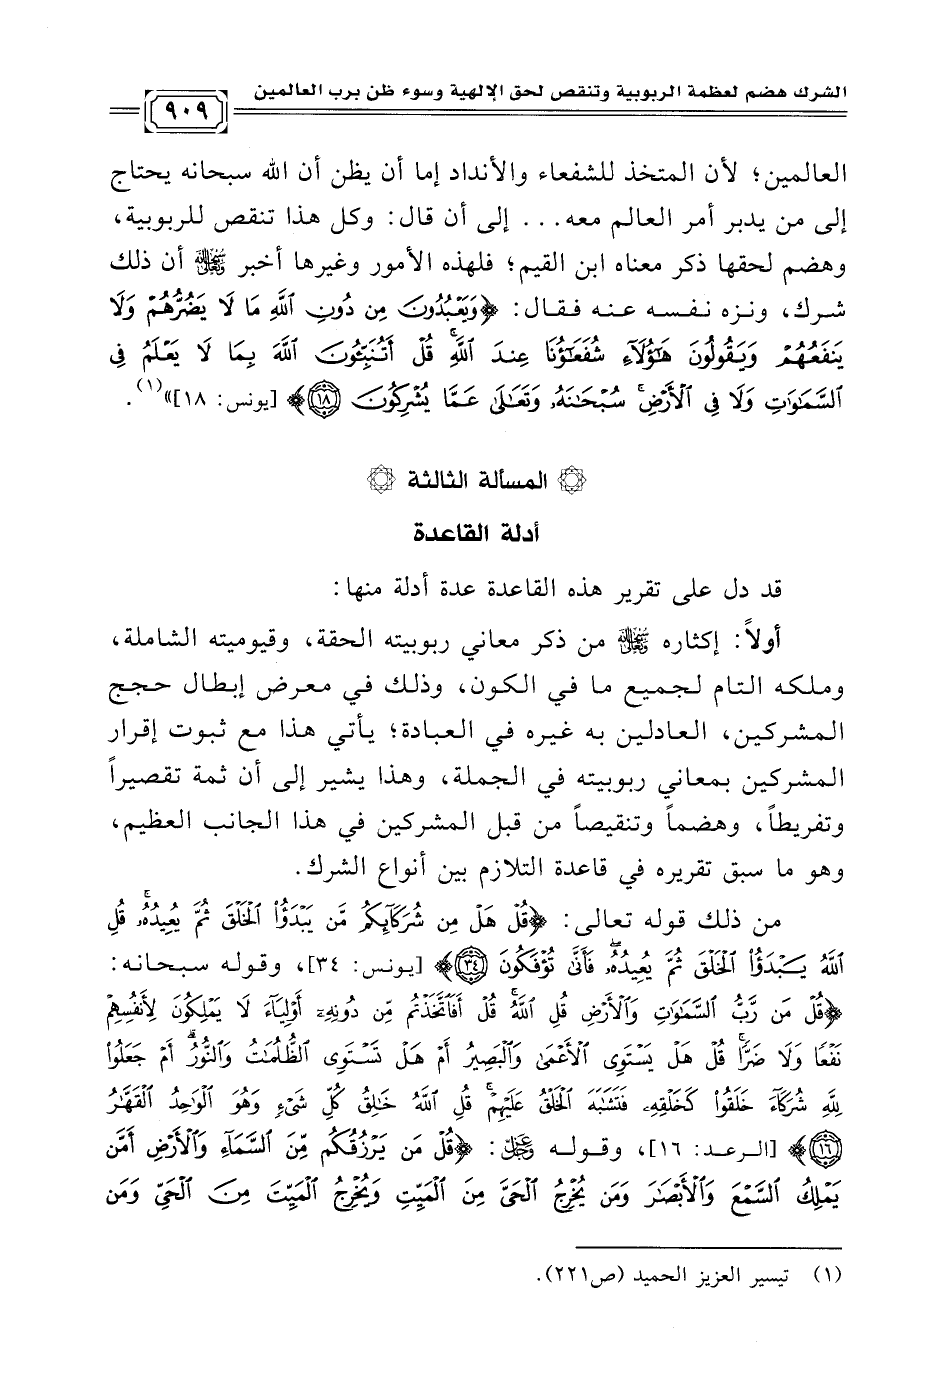 الشرك هضم لعظمة الربوبية وتنقص لحق الإلهية وسوء ظن برب العالمين
٩٠٩
العالمين؛ لأن المتخذ للشفعاء والأنداد إما أن يظن أن الله سبحانه يحتاج
إلى من يدبر أمر العالم معه... إلى أن قال: وكل هذا تنقص للربوبية،
وهضم لحقها ذكر معناه ابن القيم؛ فلهذه الأمور وغيرها أخبر ﷾ أن ذلك
شرك، ونزه نفسه عنه فقال: ﴿وَيَعْبُدُونَ مِن دُونِ ٱللَّهِ مَا لَا يَضُرُّهُمْ وَلَا
يَنفَعُهُمْ وَيَقُولُونَ هَٰٓؤُلَآءِ شُفَعَٰٓؤُنَا عِندَ ٱللَّهِ ۚ قُلْ أَتُنَبِّـُٔونَ ٱللَّهَ بِمَا لَا يَعْلَمُ فِى
ٱلسَّمَٰوَٰتِ وَلَا فِى ٱلْأَرْضِ ۚ سُبْحَٰنَهُۥ وَتَعَٰلَىٰ عَمَّا يُشْرِكُونَ ١٨﴾ [يونس: ١٨]»(١).
المسألة الثالثة
أدلة القاعدة
قد دل على تقرير هذه القاعدة عدة أدلة منها:
أولاً: إكثاره ﷾ من ذكر معاني ربوبيته الحقة، وقيوميته الشاملة،
وملكه التام لجميع ما في الكون، وذلك في معرض إبطال حجج
المشركين، العادلين به غيره في العبادة؛ يأتي هذا مع ثبوت إقرار
المشركين بمعاني ربوبيته في الجملة، وهذا يشير إلى أن ثمة تقصيراً
وتفريطاً، وهضماً وتنقيصاً من قبل المشركين في هذا الجانب العظيم،
وهو ما سبق تقريره في قاعدة التلازم بين أنواع الشرك.
من ذلك قوله تعالى: ﴿قُلْ هَلْ مِن شُرَكَآئِكُم مَّن يَبْدَؤُا۟ ٱلْخَلْقَ ثُمَّ يُعِيدُهُۥ ۚ قُلِ
ٱللَّهُ يَبْدَؤُا۟ ٱلْخَلْقَ ثُمَّ يُعِيدُهُۥ ۖ فَأَنَّىٰ تُؤْفَكُونَ ٣٤﴾ [يونس: ٣٤]، وقوله سبحانه:
﴿قُلْ مَن رَّبُّ ٱلسَّمَٰوَٰتِ وَٱلْأَرْضِ قُلِ ٱللَّهُ ۚ قُلْ أَفَٱتَّخَذْتُم مِّن دُونِهِۦٓ أَوْلِيَآءَ لَا يَمْلِكُونَ لِأَنفُسِهِمْ
نَفْعًا وَلَا ضَرًّا ۚ قُلْ هَلْ يَسْتَوِى ٱلْأَعْمَىٰ وَٱلْبَصِيرُ أَمْ هَلْ تَسْتَوِى ٱلظُّلُمَٰتُ وَٱلنُّورُ ۗ أَمْ جَعَلُوا۟
لِلَّهِ شُرَكَآءَ خَلَقُوا۟ كَخَلْقِهِۦ فَتَشَٰبَهَ ٱلْخَلْقُ عَلَيْهِمْ ۚ قُلِ ٱللَّهُ خَٰلِقُ كُلِّ شَىْءٍ وَهُوَ ٱلْوَٰحِدُ ٱلْقَهَّٰرُ
١٦﴾ [الرعد: ١٦]، وقوله ﷿: ﴿قُلْ مَن يَرْزُقُكُم مِّنَ ٱلسَّمَآءِ وَٱلْأَرْضِ أَمَّن
يَمْلِكُ ٱلسَّمْعَ وَٱلْأَبْصَٰرَ وَمَن يُخْرِجُ ٱلْحَىَّ مِنَ ٱلْمَيِّتِ وَيُخْرِجُ ٱلْمَيِّتَ مِنَ ٱلْحَىِّ وَمَن
(١) تيسير العزيز الحميد (ص٢٢١).